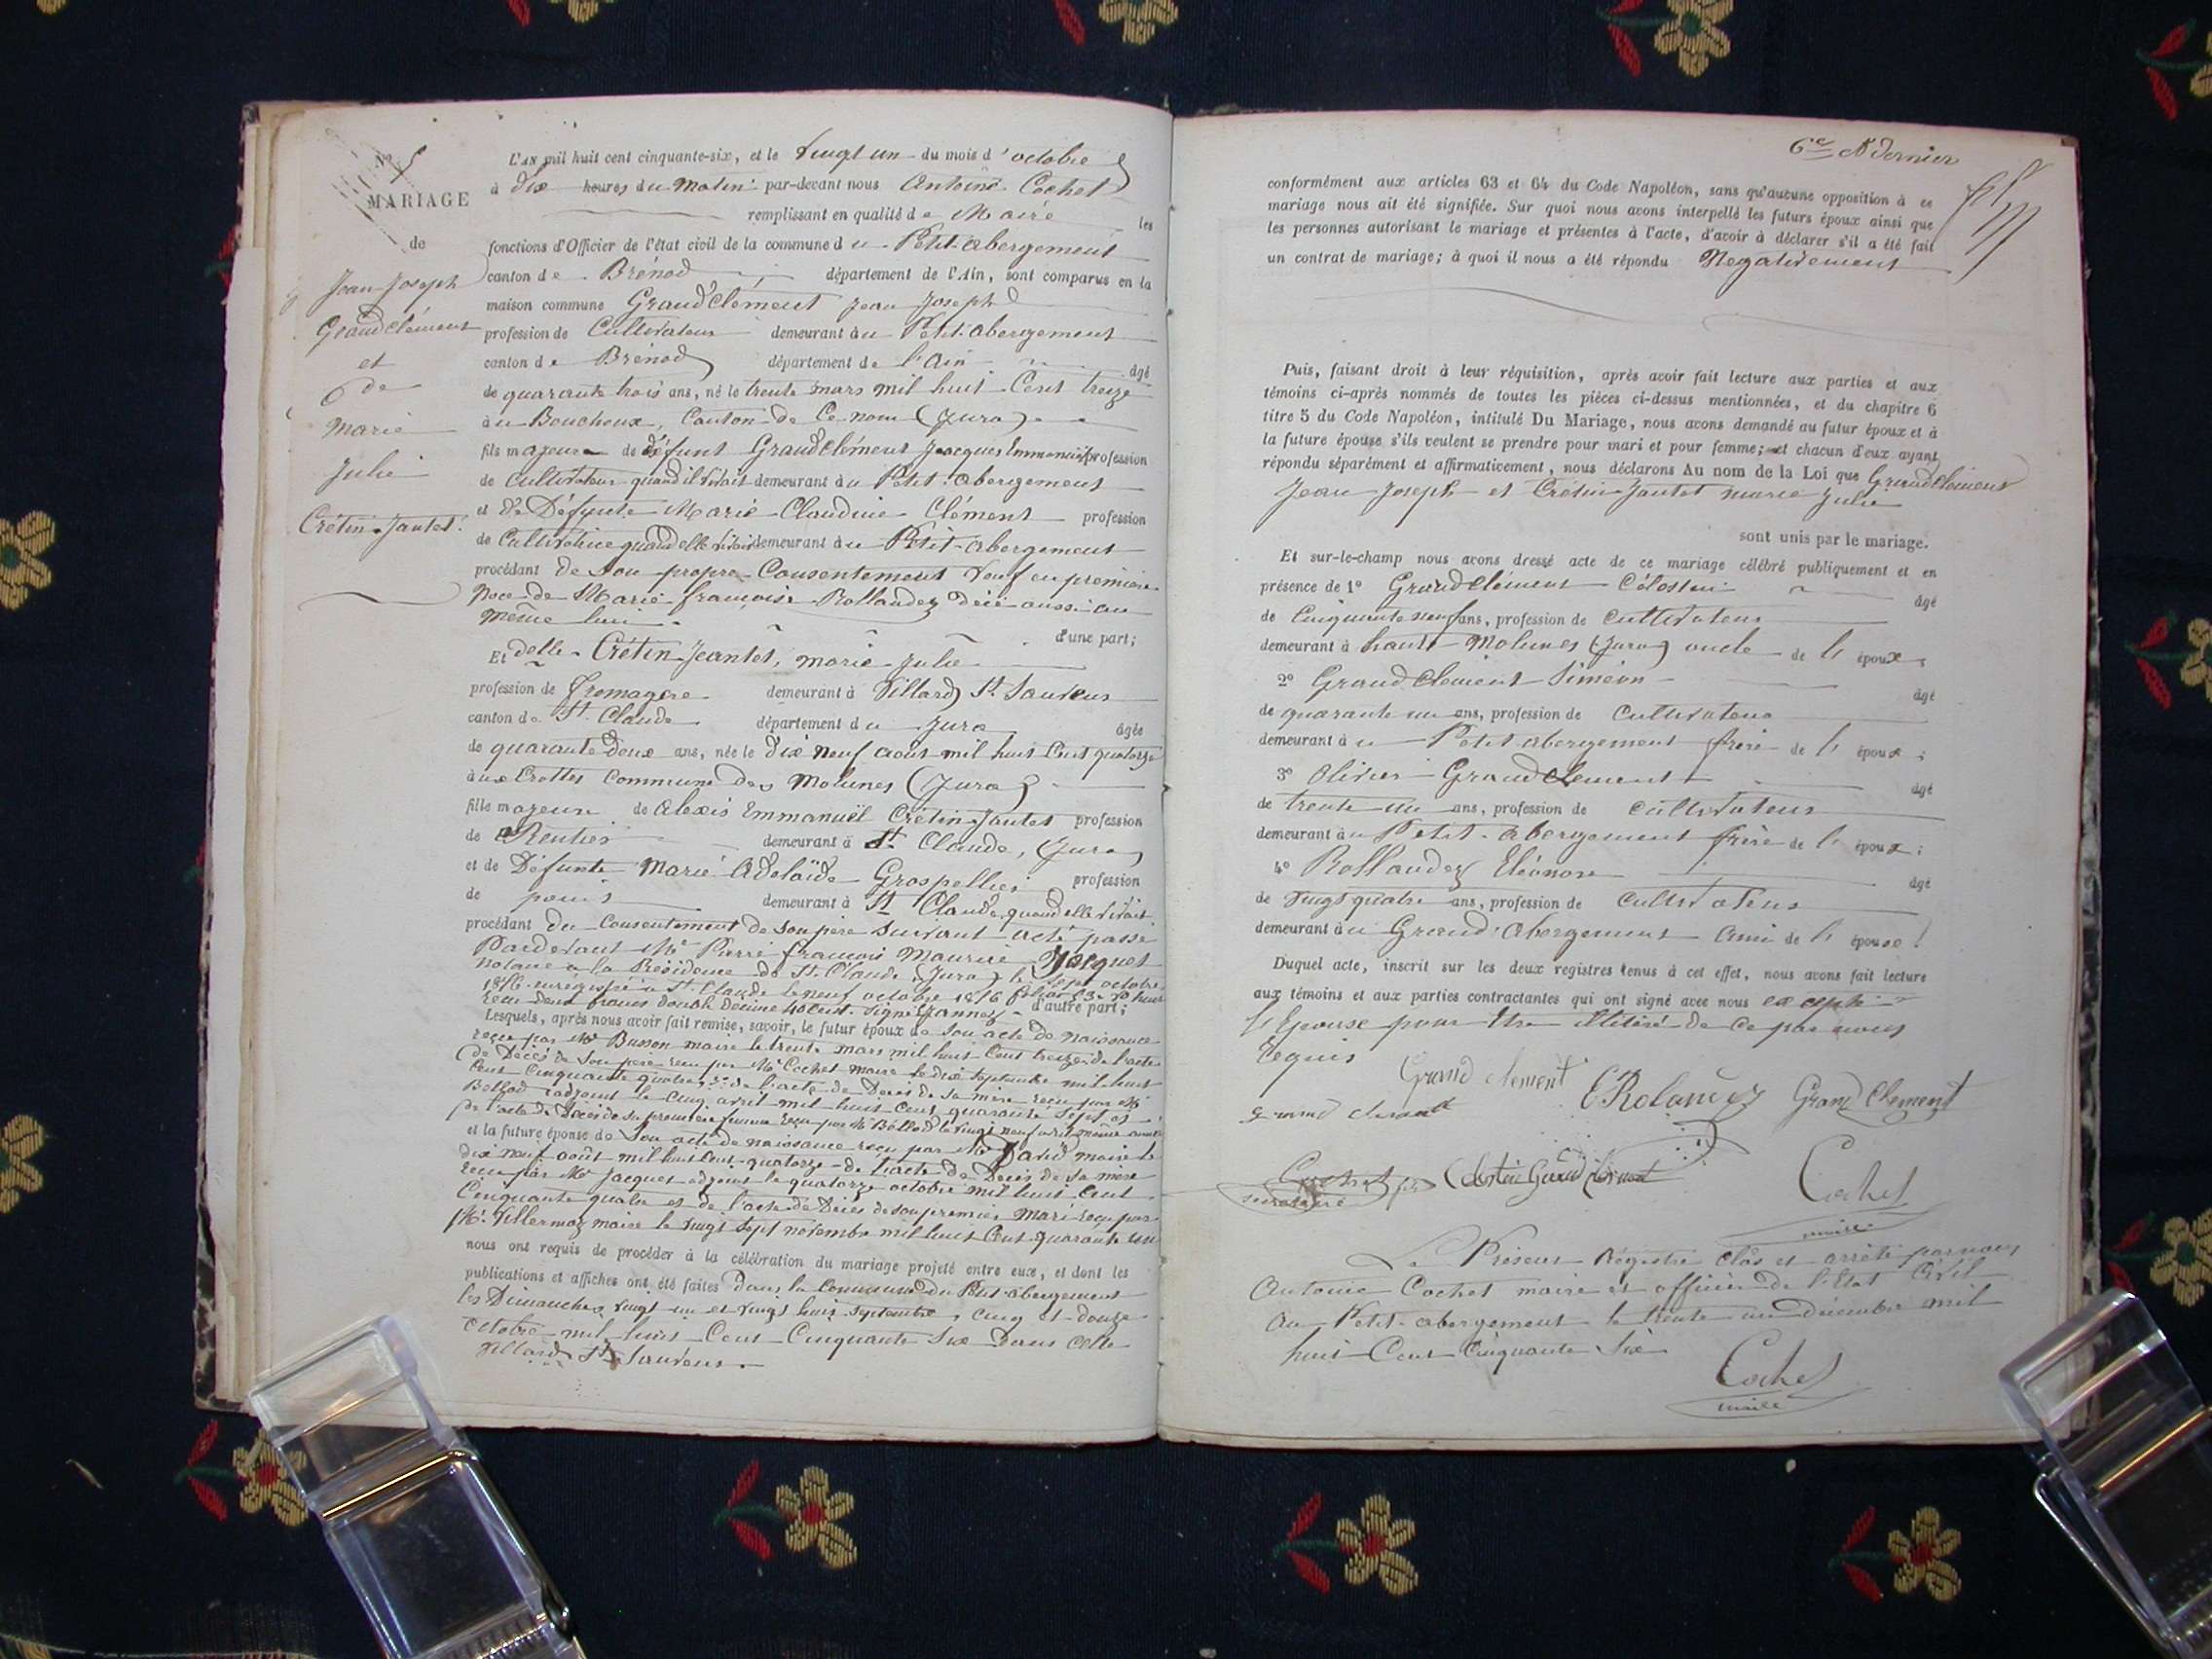 N° 5
MARIAGE
de
Jean Joseph
Grandclément
et
de
Marie
Julie
Crétin-Jantet.
L'AN mil huit cent cinquante-six, et le vingt un du mois d'octobre
à dix heures du matin par-devant nous Antoine Cochet
remplissant en qualité de Maire les
fonctions d'Officier de l'état civil de la commune du Petit-abergement
canton de Brénod département de l'Ain, sont comparus en la
maison commune Grand'clément Jean Joseph
profession de Cultivateur demeurant au Petit abergement
canton de Brénod département de l'Ain âgé
de quarante trois ans, né le trente mars mil huit Cent treize
au Bouchoux, Canton de Ce nom (Jura)
fils majeur de défunt Grandclément Jacques Emmanuel profession
de Cultivateur quand il vivait demeurant au Petit-abergement
et de Défunte Marie Claudine Clément profession
de Cultivatrice quand elle vivait demeurant au Petit-abergement
procédant de son propre Consentement Veuf en première
Noce de Marie françoise Rollandez décé aussi au
même lieu. d'une part;
Et delle Crétin-Jeantet, marie Julie
profession de fromagère demeurant à Villard St. Sauveur
canton de St. Claude département du Jura âgée
de quarante deux ans, née le dix neuf août mil huit Cent quatorze
aux Crottes Commune des Molunes (Jura)
fille majeure de Alexis Emmanuël Crétin-Jantet profession
de Rentier demeurant à St. Claude, (Jura)
et de Défunte Marie Adelaïde Grospellier profession
de demeurant à St Claude quand elle vivait
procédant du Consentement de son père suivant acte passé
Pardevant Me Pierre françois Maurice Jacquet
notaire à la Résidence de St. Claude (Jura) le sept octobre
1856 enregistré à St. Claude le neuf octobre 1856
reçu deux francs double décime 40 cent. signé d'autre part;
Lesquels, après nous avoir fait remise, savoir, le futur époux de son acte de naissance
reçu par Mr Busson maire le trente mars mil huit Cent treize de l'acte
de Décès de son père reçu par Mr Cochet maire le dix septembre mil huit
Cent Cinquante quatre de l'acte de Décès de sa mère reçu par Mr
Bollod adjoint le cinq avril mil huit Cent quarante sept et
de l'acte de Décès de sa première femme reçu par Mr Bollod le vingt neuf avril même année
et la future épouse de son acte de naissance reçu par Mr David maire le
dix neuf août mil huit Cent quatorze de l'acte de Décès de sa mère
reçu par Mr Jacquet adjoint le quatorze octobre mil huit Cent
Cinquante quatre et de l'acte de Décès de son premier Mari reçu par
Mr. Villermoz maire le vingt sept novembre mil huit Cent quarante un
nous ont requis de procéder à la célébration du mariage projeté entre eux, et dont les
publications et affiches ont été faites dans la Commune du Petit-abergement
les Dimanches vingt un et vingt huit septembre, cinq et douze
octobre mil huit Cent Cinquante Six Dans celle
Villard St. Sauveur.
6e et dernier
conformément aux articles 63 et 64 du Code Napoléon, sans qu'aucune opposition à ce
mariage nous ait été signifiée. Sur quoi nous avons interpellé les futurs époux ainsi que
les personnes autorisant le mariage et présentes à l'acte, d'avoir à déclarer s'il a été fait
un contrat de mariage; à quoi il nous a été répondu Negativement
Puis, faisant droit à leur réquisition, après avoir fait lecture aux parties et aux
témoins ci-après nommés de toutes les pièces ci-dessus mentionnées, et du chapitre 6
titre 5 du Code Napoléon, intitulé Du Mariage, nous avons demandé au futur époux et à
la future épouse s'ils veulent se prendre pour mari et pour femme; et chacun d'eux ayant
répondu séparément et affirmativement, nous déclarons Au nom de la Loi que Grandclément
Jean Joseph et Crétin-Jantet marie Julie
sont unis par le mariage.
Et sur-le-champ nous avons dressé acte de ce mariage célébré publiquement et en
présence de 1° Grandclément Célestin âgé
de Cinquante neuf ans, profession de Cultivateur
demeurant à haute-Molunes (Jura) oncle de l'époux;
2° Grandclement Siméon âgé
de quarante un ans, profession de Cultivateur
demeurant au Petit abergement frère de l'époux;
3° Olivier Grandclement âgé
de trente un ans, profession de Cultivateur
demeurant au Petit-abergement frère de l'époux;
4° Rollandez Eléonore âgé
de Vingt quatre ans, profession de Cultivateur
demeurant au Grand'Abergement Ami de l'épouse.
Duquel acte, inscrit sur les deux registres tenus à cet effet, nous avons fait lecture
aux témoins et aux parties contractantes qui ont signé avec nous excepté
l'Epouse pour être illitéré de ce par nous
Requis
Grand clement E Rolandez Grand Clement
Célestin Grand Clément
Cochet
secretaire
Cochet
maire
Le Présent Régistre clos et arrêté par nous
Antoine Cochet maire et officier de l'Etat Civil
au Petit-abergement le trente un décembre mil
huit Cent Cinquante Six
Cochet
maire